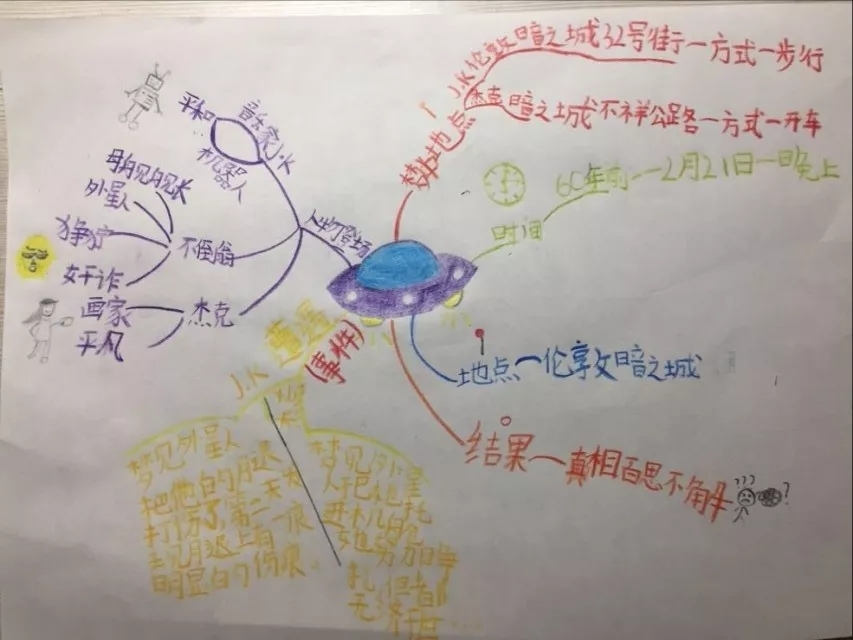 J.K伦敦暗之城32号街一方式一步行
杰克暗之城不祥公路一方式一开车
地点
60年前一2月21日一晚上
时间
人物登场
音乐家J.K
平和
机器人
不倒翁
母舰舰长
外星人
狰狞
奸诈
杰克
画家
平凡
遭遇
(事件)
J.K
梦见外星人
把他的腿
打伤了,第二天
现腿上有一
明显的伤痕.
梦见外星
人
进机
努力
扎,但都
无济于
地点一伦敦暗之城
结果一真相百思不解
???
?